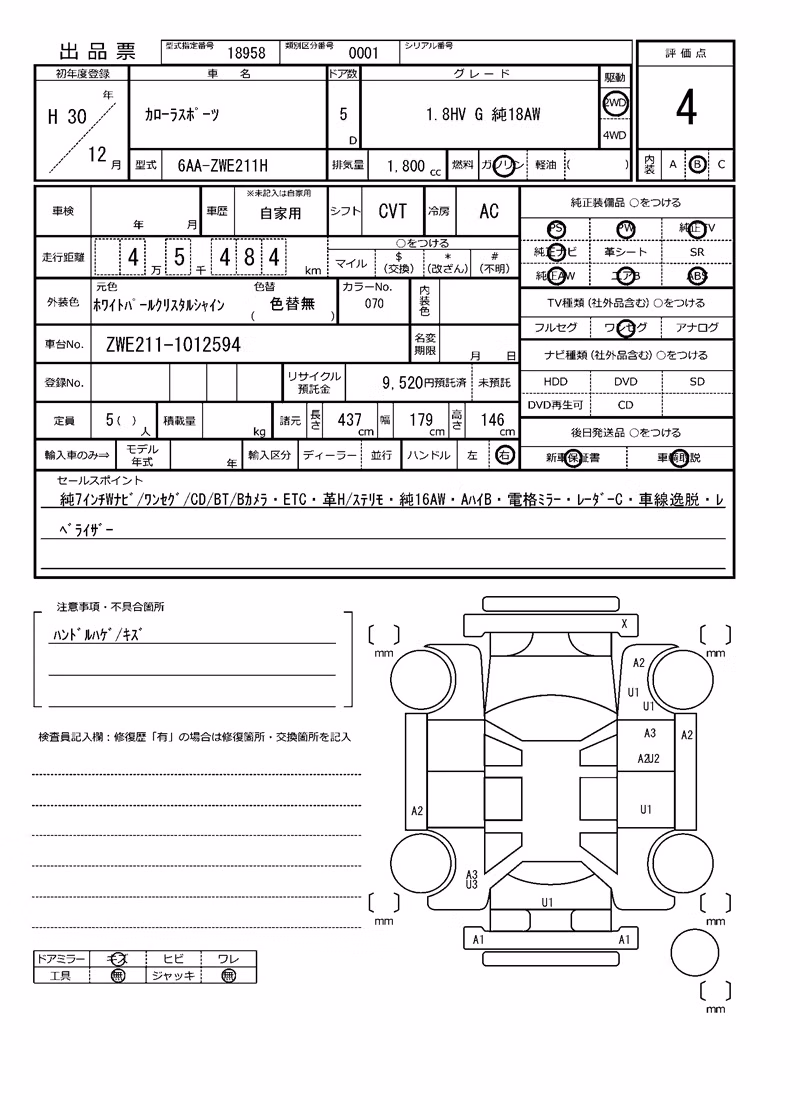 出品票 型式指定番号 18958 類別区分番号 0001 シリアル番号
評価点
初年度登録 車名 ドア数 グレード 駆動
H 30 年 12 月 カローラスポーツ 5 D 1.8HV G 純18AW 2WD 4WD
4
型式 6AA-ZWE211H 排気量 1,800 cc 燃料 ガソリン 軽油 ( )
内装 A B C
車検 年 月 車歴 ※未記入は自家用 自家用 シフト CVT 冷房 AC
純正装備品 ○をつける
走行距離 4 万 5 千 4 8 4 km ○をつける
マイル $ (交換) * (改ざん) # (不明)
PS PW 純正TV
純正ナビ 革シート SR
純正AW エアB ABS
外装色 元色 ホワイトパールクリスタルシャイン 色替 ( 色替無 ) カラーNo. 070 内装色
TV種類 (社外品含む) ○をつける
フルセグ ワンセグ アナログ
車台No. ZWE211-1012594 名変期限 月 日
ナビ種類 (社外品含む) ○をつける
登録No. リサイクル預託金 9,520円預託済 未預託
HDD DVD SD
DVD再生可 CD
定員 5 ( ) 人 積載量 kg 諸元 長さ 437 cm 幅 179 cm 高さ 146 cm
後日発送品 ○をつける
輸入車のみ⇒ モデル年式 年 輸入区分 ディーラー 並行 ハンドル 左 右
新車保証書 車輌取説
セールスポイント
純7インチWナビ/ワンセグ/CD/BT/Bカメラ・ETC・革H/ステリモ・純16AW・AハイB・電格ミラー・レーダーC・車線逸脱・レ
ベライザー
注意事項・不具合箇所
ハンドルハゲ/キズ
検査員記入欄：修復歴「有」の場合は修復箇所・交換箇所を記入
X
mm mm
A2
U1
U1
A3 A2
A2U2
A2 U1
A3
U3
U1
mm mm
A1 A1
mm
ドアミラー キズ ヒビ ワレ
工具 無 ジャッキ 無